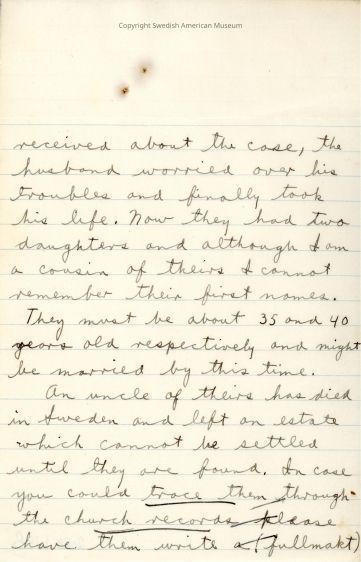 Copyright Swedish American Museum
received about the case, the
husband worried over his
troubles and finally took
his life. Now they had two
daughters and although I am
a cousin of theirs I cannot
remember their first names.
They must be about 35 and 40
years old respectively and might
be married by this time.
An uncle of theirs has died
in Sweden and left an estate
which cannot be settled
until they are found. In case
you could trace them through
the church records please
have them write a (fullmakt)